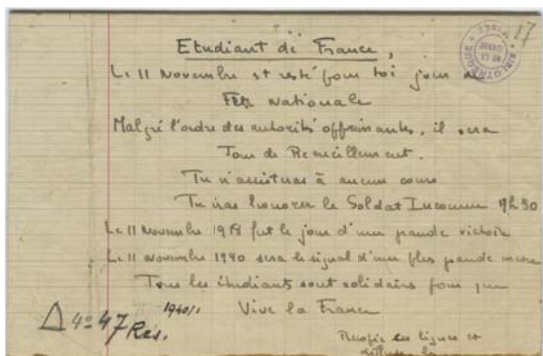 17
BIBLIOTHEQUE
Etudiant de France,
Le 11 Novembre est resté pour toi jour de
Fête Nationale
Malgré l'ordre des autorités opprimantes, il sera
Jour de Recueillement.
Tu n'assisteras à aucun cours
Tu iras honorer le Soldat Inconnu 17h30
Le 11 Novembre 1918 fut le jour d'une grande victoire
Le 11 novembre 1940 sera le signal d'une plus grande encore
Tous les étudiants sont solidaires pour que
Vive la France
Δ 4° 47 Rés.
1940/1
Recopie ces lignes et
diffuse-les